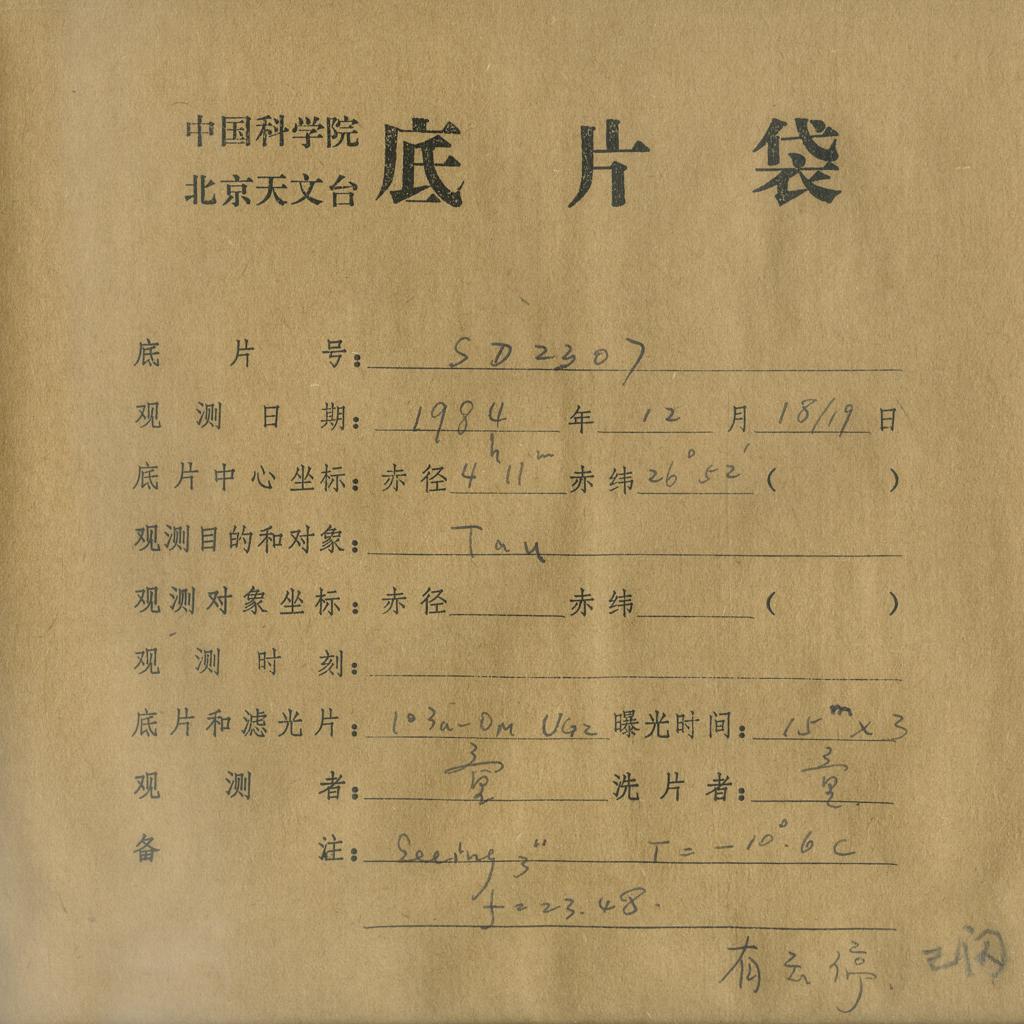 中国科学院
北京天文台 底片袋
底片号: SD2307
观测日期: 1984 年 12 月 18/19 日
底片中心坐标: 赤径 4h 11m 赤纬 26° 52′ ( )
观测目的和对象: Tau
观测对象坐标: 赤径 赤纬 ( )
观测时刻:
底片和滤光片: 103a-OM UG2 曝光时间: 15m x 3
观测者: 洗片者:
备注: Seeing 3″ T = -10°.6 C
f = 23.48.
有云停.